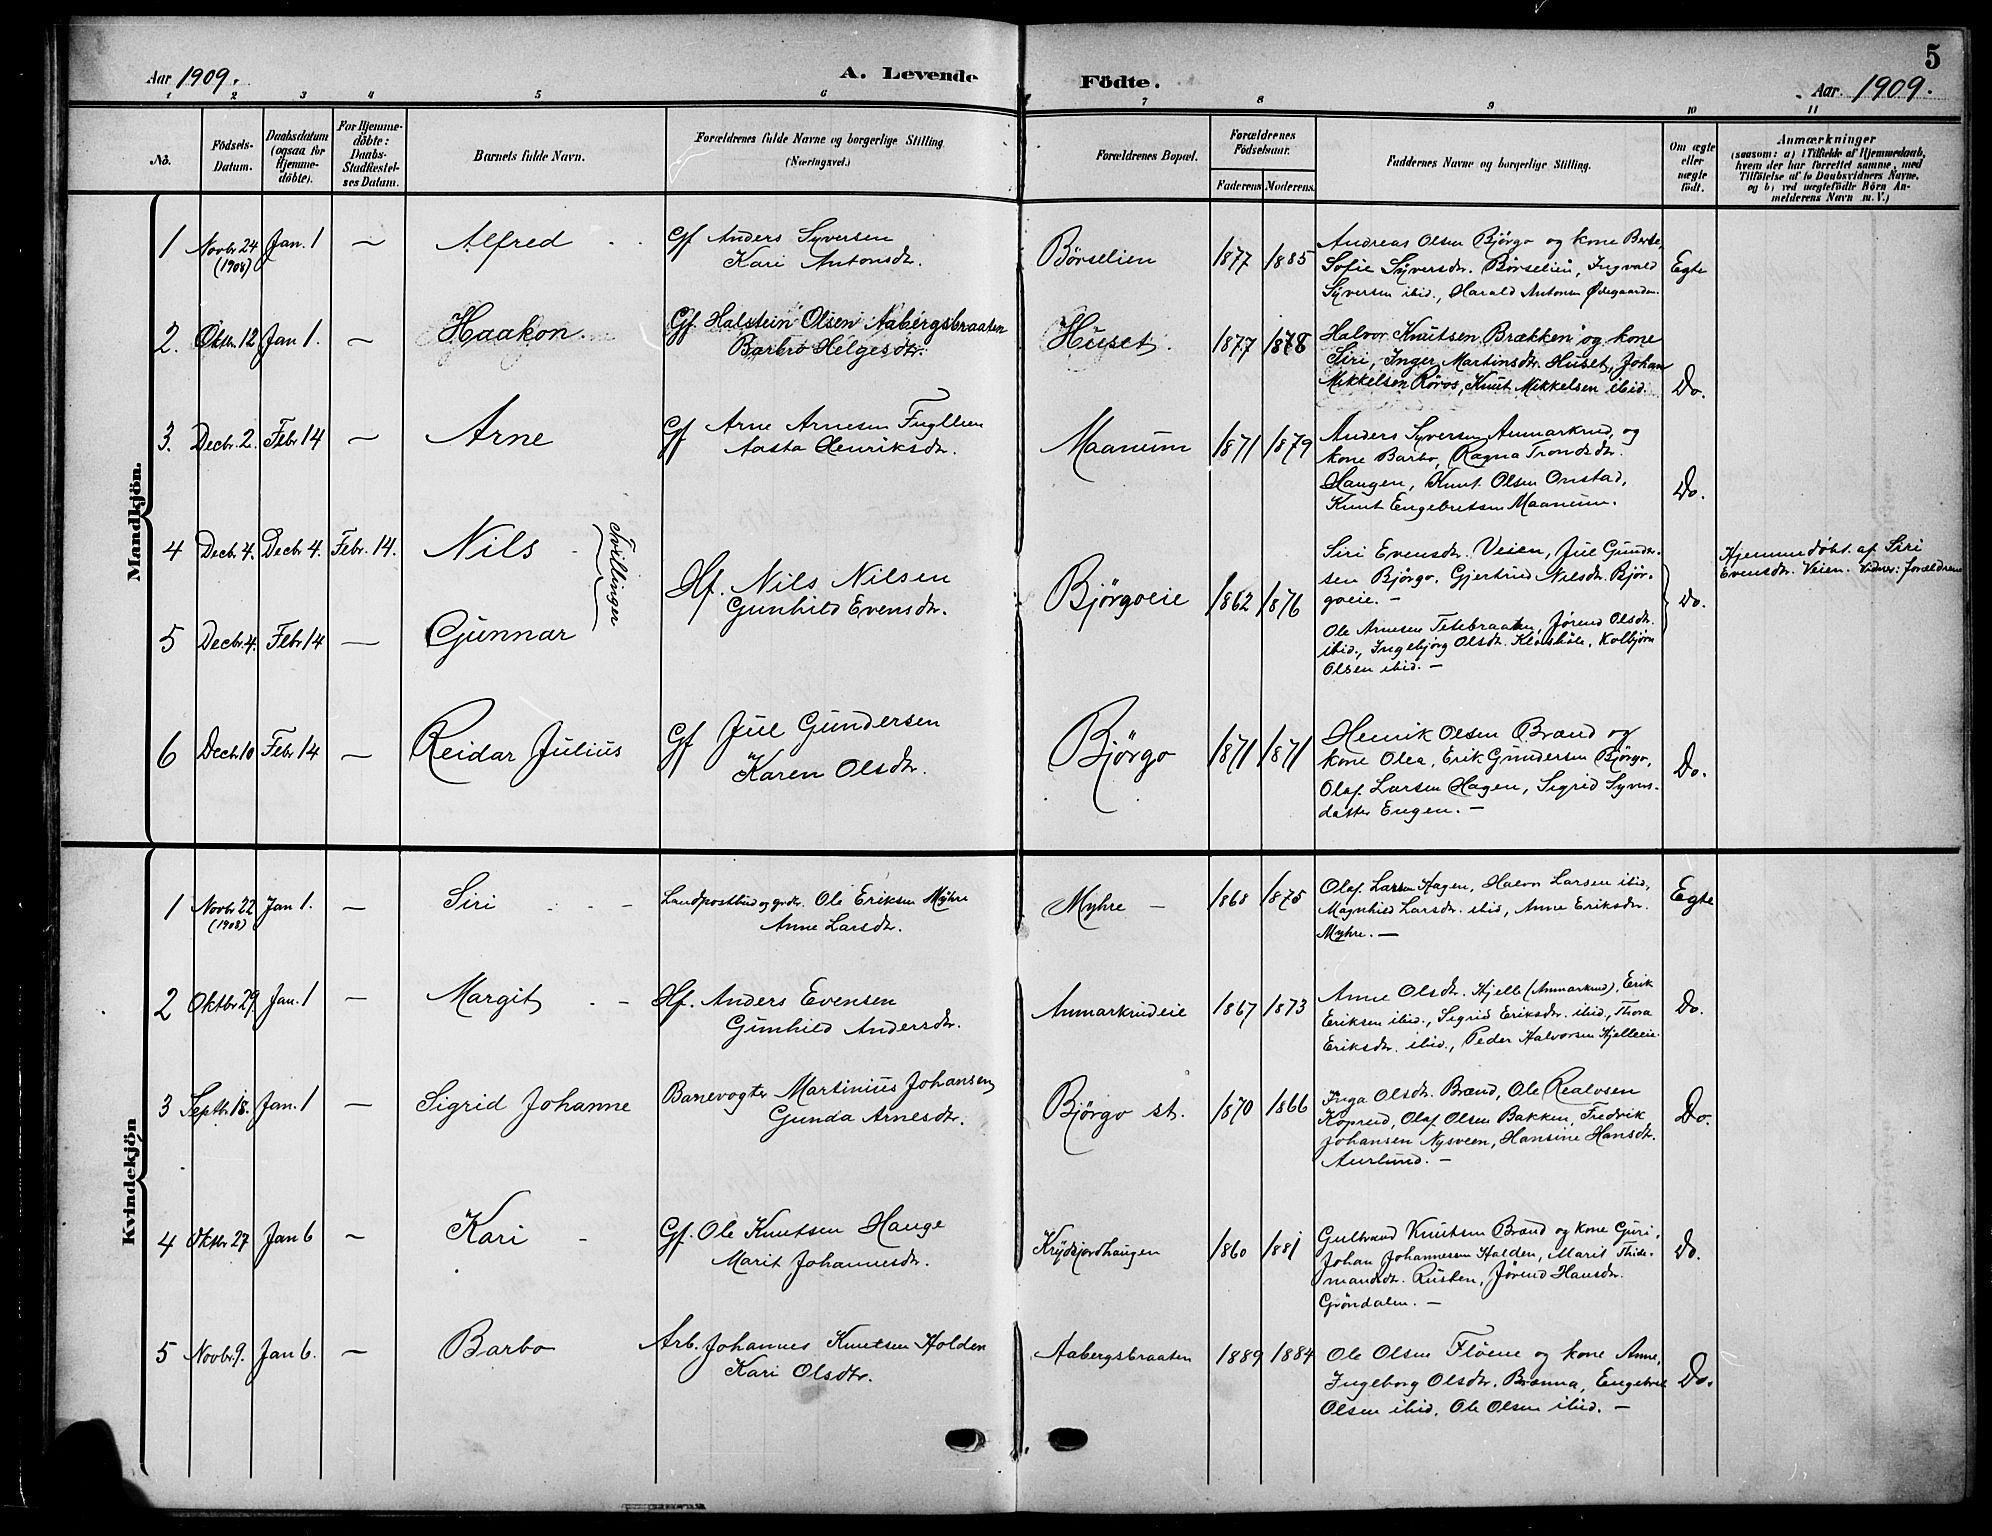 5
Aar 1909.
A. Levende
Födte.
Aar. 1909.
1 2 3 4 5 6 7 8 9 10 11
Nö.
Födsels-
Datum.
Daabsdatum
(ogsaa for
Hjemme-
döbte).
For Hjemme-
döbte:
Daabs-
Stadfæstel-
ses Datum.
Barnets fulde Navn.
Forældrenes fulde Navne og borgerlige Stilling
(Næringsvei.)
Forældrenes Bopæl.
Forældrenes
Födselsaar.
Faderens Moderens.
Faddernes Navne og borgerlige Stilling.
Om ægte
eller
uægte
födt.
Anmærkninger
(saasom: a) i Tilfælde af Hjemmedaab,
hvem der har forrettet samme, med
Tilföielse af to Daabsvidners Navne,
og b) ved uægtefödte Börn An-
melderens Navn m. V.)
Mandkjön.
1 Novbr 24 Jan. 1 — Alfred
(1908)
Gf Anders Syversen
Kari Antonsdr.
Børselien 1877 1885
Andreas Olsen Bjørgo og kone Berte,
Sofie Syversdr. Børselien, Ingvald
Syversen ibid., Harald Antonsen Ødegaarden.
Egte
2. Oktbr. 12 Jan 1. — Haakon.
Gf. Halstein Olsen Aabergsbraaten
Barbro Helgesdtr.
Huset. 1877 1878
Halvor Knutsen Brækken og kone
Siri, Inger Martinsdtr. Huset, Johan
Mikkelsen Røros, Knut Mikkelsen ibid.
Do.
3. Decbr. 2. Febr 14 — Arne
Gf Arne Arnesen Fugllien
Aasta Henriksdr.
Maanum 1871 1879
Anders Syversen Anmarkrud, og
kone Barbo, Ragna Trondsdr.
Haugen, Knut Olsen Onstad,
Knut Engebretsen Maanum.
Do.
4 Decbr. 4. Decbr 4. Febr. 14. Nils
Tvillinger
Hf. Nils Nilsen
Gunhild Evensdr.
Bjørgoeie 1862 1876
Siri Evensdr. Veien, Jul Gunder-
sen Bjørgo, Gjertrud Nilsdr. Bjør-
goeie. —
Do.
Hjemmedøbt af Siri
Evensdr. Veien. Vidner: forældrene
5 Decbr. 4. Febr 14 — Gunnar
Ole Arnesen Tetebraaten, Jørend Olsdr.
ibid., Ingebjørg Olsdr. Kløvshöle, Kolbjørn
Olsen ibid. —
6 Decbr. 10 Febr 14 — Reidar Julius
Gf Jul Gundersen
Karen Olsdtr.
Bjørgo 1871 1871
Henrik Olsen Brænd og
kone Olea, Erik Gundersen Bjørgo,
Olaf Larsen Hagen, Sigrid Syvers-
datter Engen. —
Do.
Kvindekjön
1 Novbr 22 Jan 1. — Siri
(1908)
Landpostbud og grdr. Ole Eriksen Myhre
Anne Larsdr.
Myhre — 1868 1875
Olaf Larsen Hagen, Halvor Larsen ibid,
Magnhild Larsdr. ibid, Anne Eriksdr.
Myhre. —
Egte
2 Oktbr. 29. Jan. 1 — Margit
Hf. Anders Evensen
Gunhild Andersdr.
Anmarkrudeie 1867 1873
Anne Olsdr. Hjelle (Anmarkrud), Erik
Eriksen ibid., Sigrid Eriksdr. ibid, Thora
Eriksdr. ibid., Peder Halvorsen Hjelleeie.
Do.
3 Septbr. 18. Jan. 1 — Sigrid Johanne
Banevogter Martinius Johansen
Gunda Arnesdtr.
Bjørgo st. 1870 1866
Inga Olsdtr. Brænd, Ole Realvsen
Koprud, Olaf Olsen Bakken, Fredrik
Johansen Nysveen, Hansine Hansdtr.
Aurlund. —
Do.
4 Oktbr 27 Jan 6 — Kari
Gf. Ole Knutsen Hauge
Marit Johannesdr.
Krydsjordhaugen 1860 1881
Gulbrand Knutsen Brænd og kone Guri,
Johan Johannessen Halden, Marit Thide-
mandsdr. Rusten, Jørend Hansdr.
Grøndalen. —
Do.
5 Novbr. 9. Jan 6. — Barbo
Arb. Johannes Knutsen Holden
Kari Olsdtr.
Aabergsbraaten 1889 1884
Ole Olsen Fløene og kone Anne,
Ingeborg Olsdtr. Brænna, Engebret
Olsen ibid, Ole Olsen ibid. —
Do.